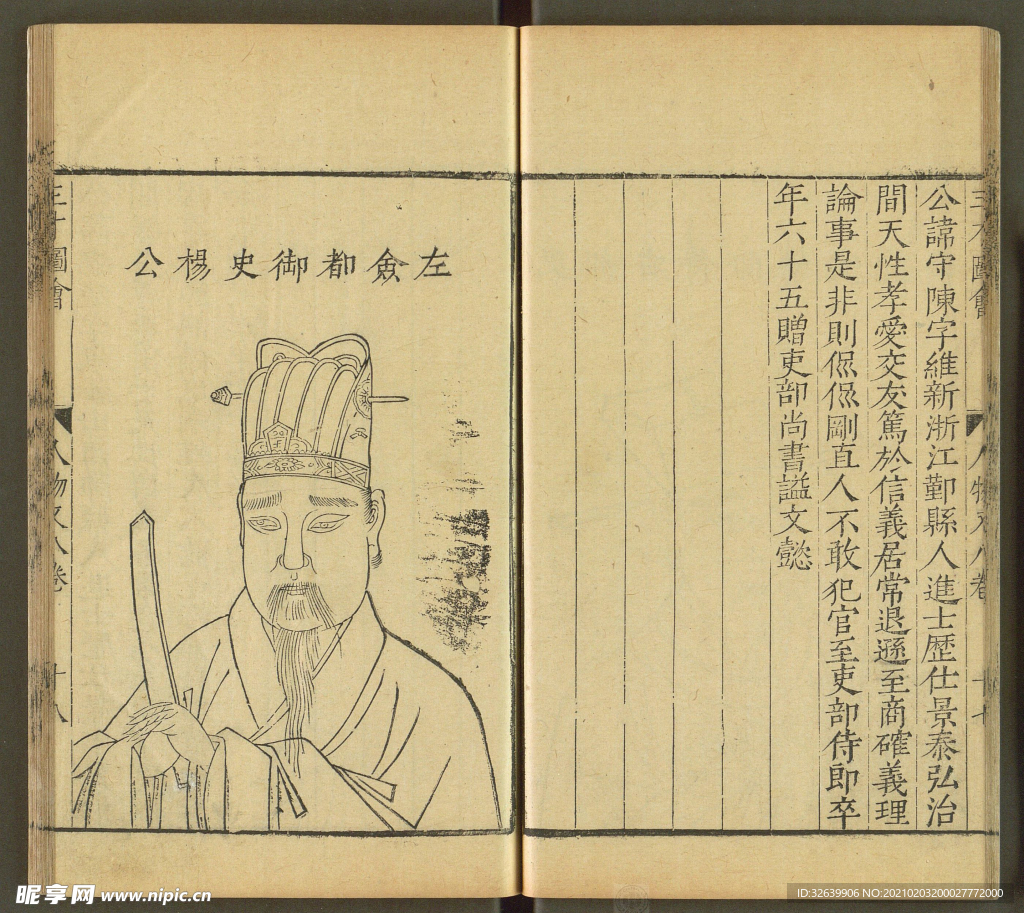 三才圖會
人物又八卷
十七
公諱守陳字維新浙江鄞縣人進士歷仕景泰弘治
間天性孝愛交友篤於信義居常退遜至商確義理
論事是非則侃侃剛直人不敢犯官至吏部侍郎卒
年六十五贈吏部尚書謚文懿
左僉都御史楊公
三才圖會
人物又八卷
十八
昵享网 www.nipic.cn
ID:32639906 NO:20210203200027772000